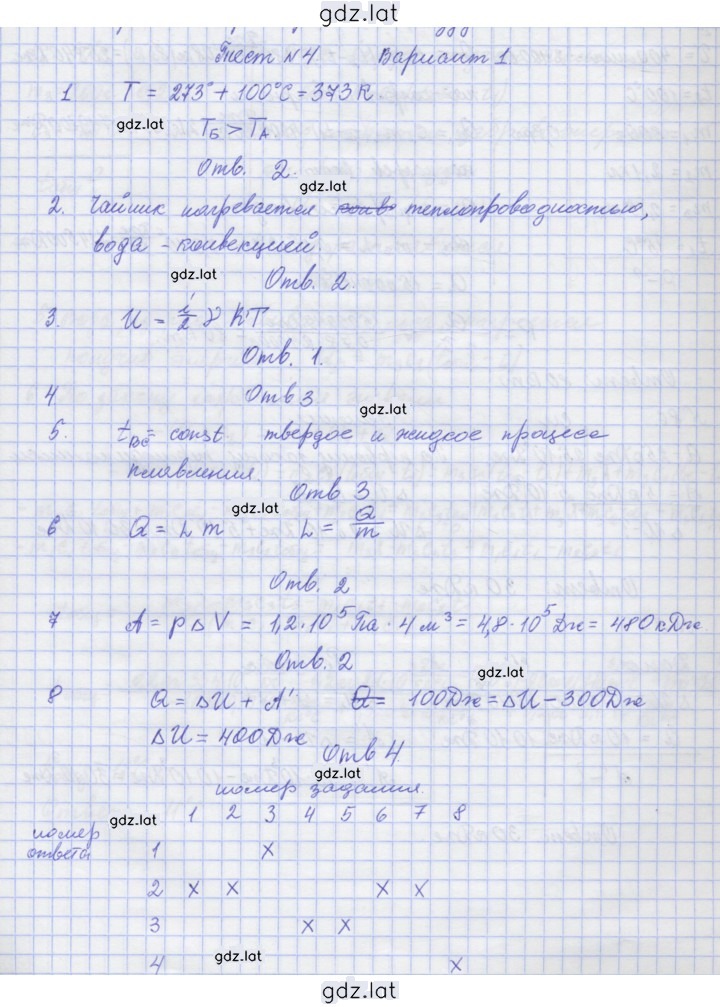 gdz.lat
Тест №4. Вариант 1
1 T = 273° + 100°C = 373K.
gdz.lat
T_Б > T_A
Отв. 2.
gdz.lat
2. Чайник нагревается конв теплопроводностью,
вода - конвекцией.
gdz.lat
Отв. 2
3. U = i/2 ν RT
Отв. 1.
4. Отв 3
gdz.lat
5. t_BC = const. твердое и жидкое процесс
плавления.
Отв 3
gdz.lat
6 Q = L m L = Q/m
Отв. 2
7 A = p Δ V = 1,2·10⁵ Па · 4 м³ = 4,8·10⁵ Дж = 480 кДж
Отв. 2
gdz.lat
8 Q = ΔU + A' Q = 100Дж = ΔU - 300Дж
ΔU = 400Дж
Отв 4.
gdz.lat
номер задания.
gdz.lat
1 2 3 4 5 6 7 8
номер
ответа
1 x
2 x x x x
3 x x
4 x
gdz.lat
gdz.lat